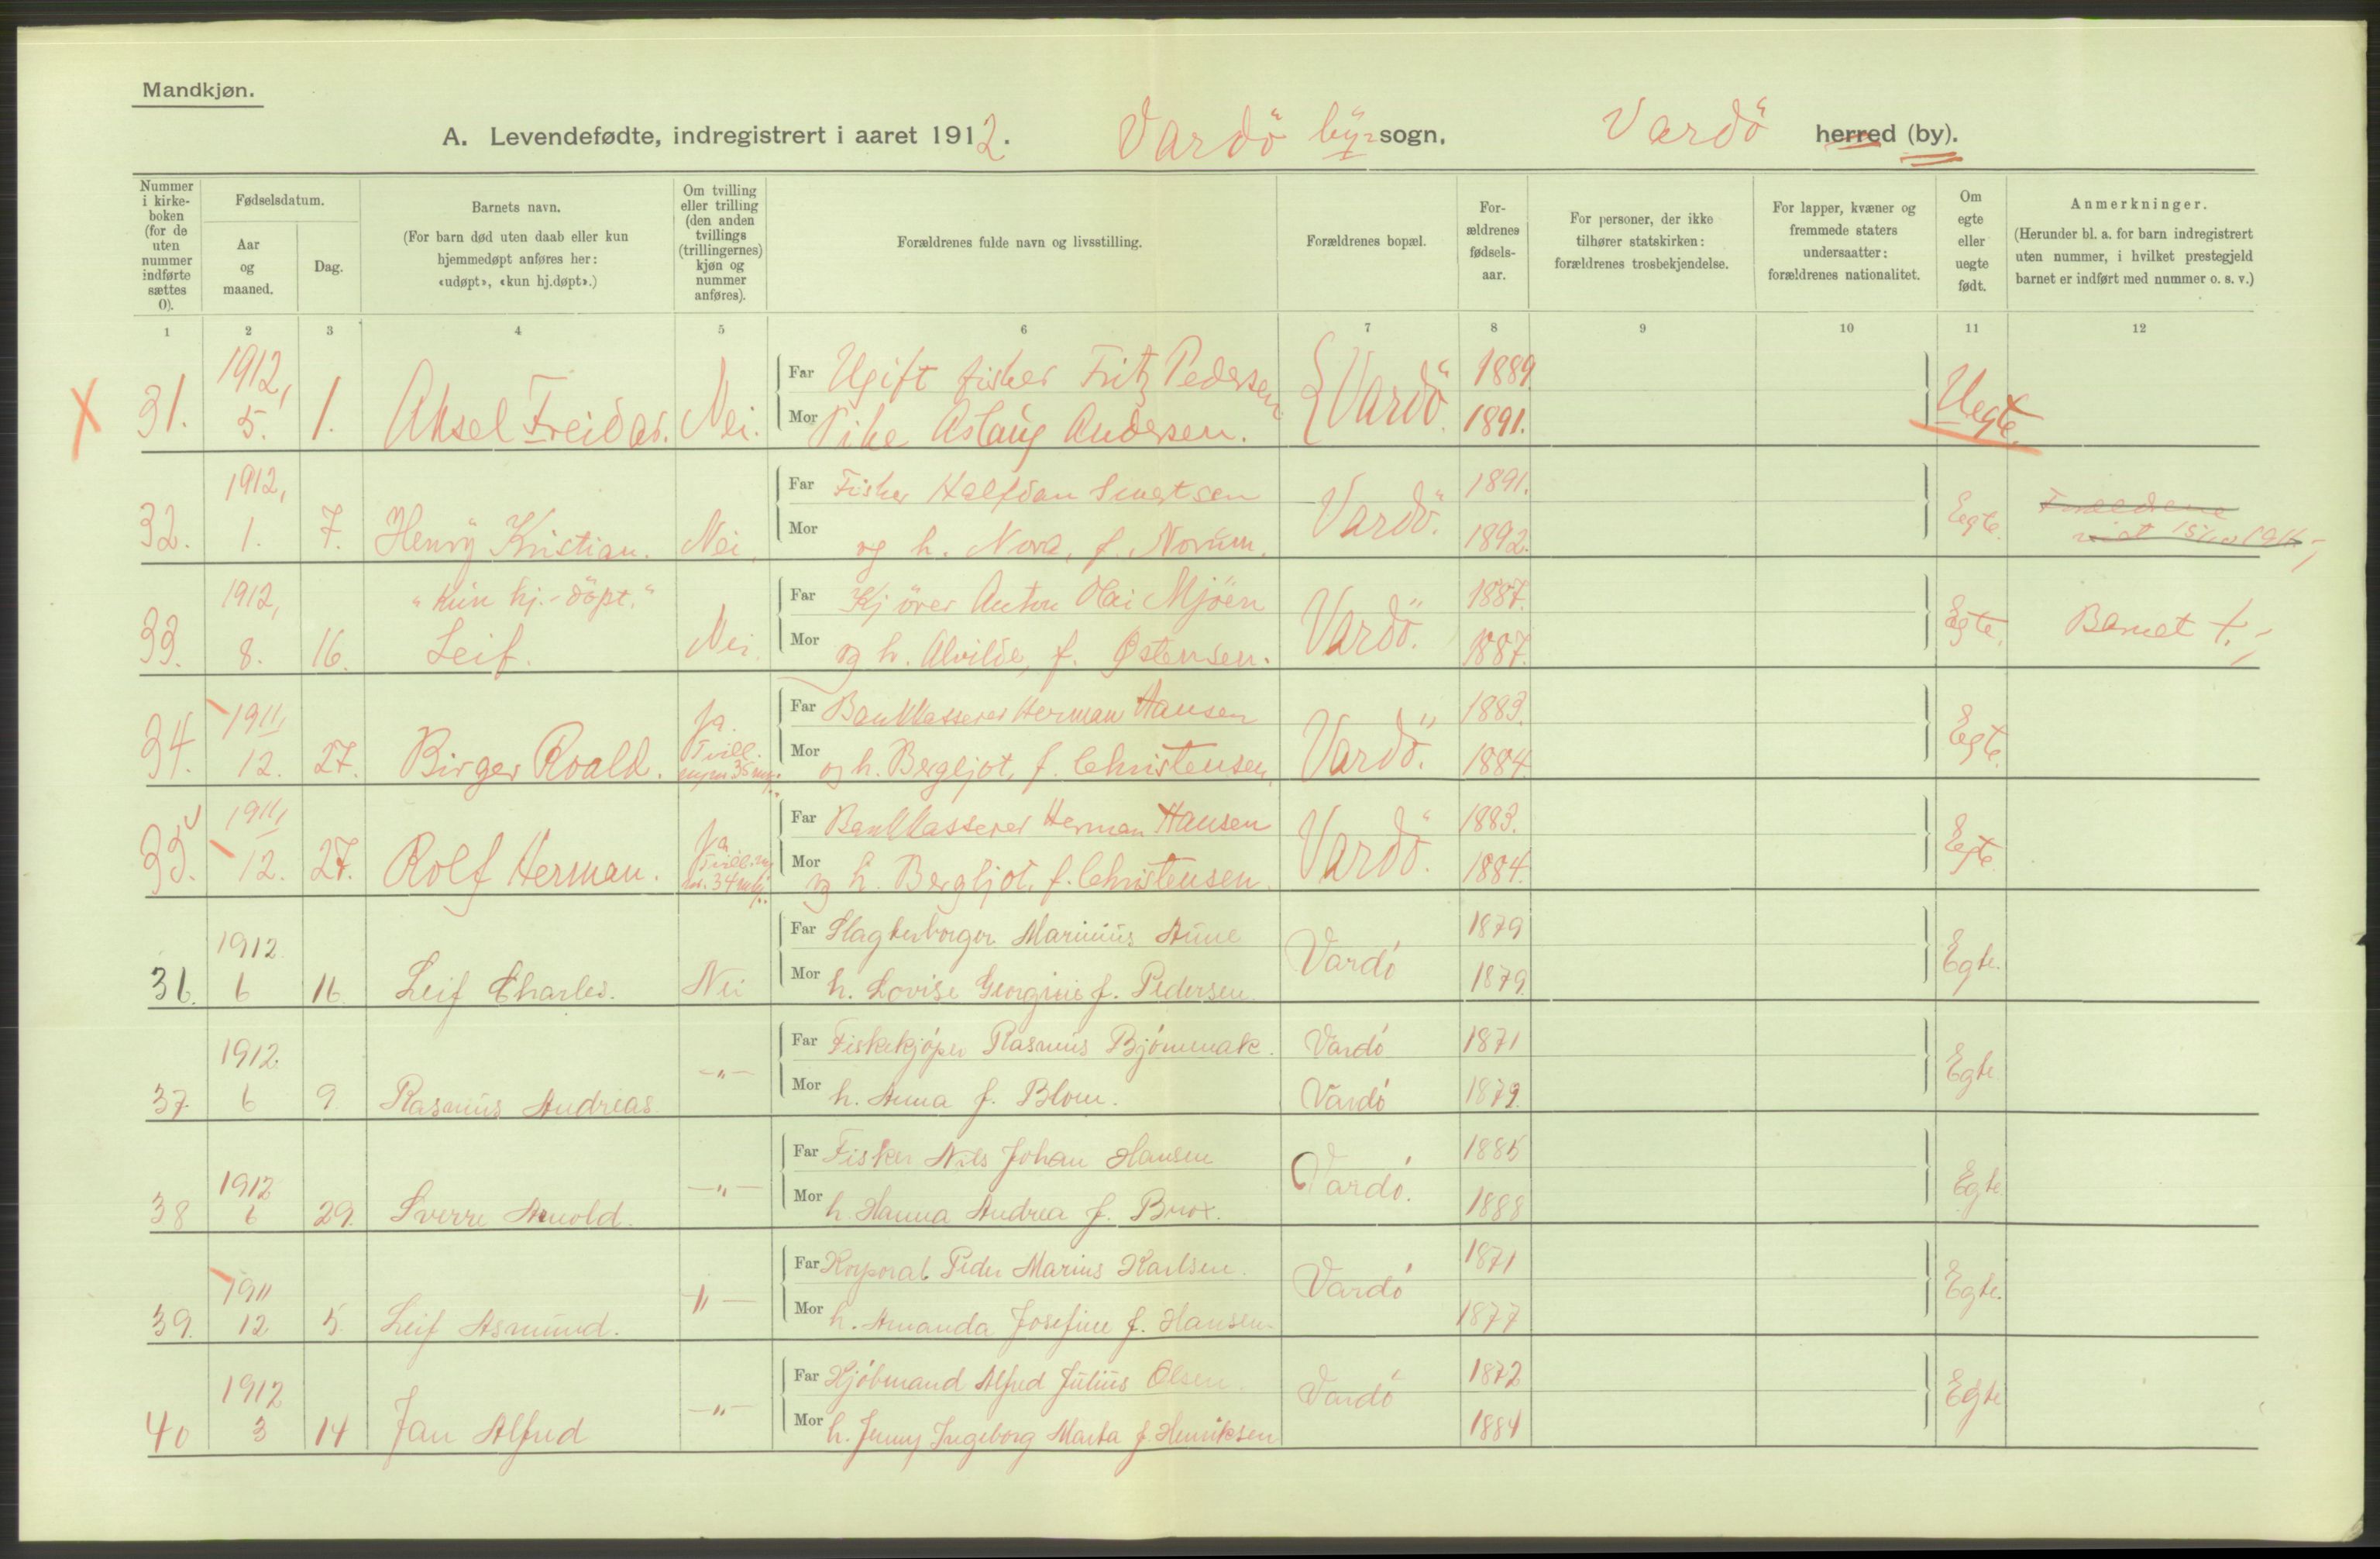 Mandkjøn.
A. Levendefødte, indregistrert i aaret 1912. Vardö by- sogn, Vardö herred (by).
Nummer i kirkeboken (for de uten nummer indførte sættes 0).
Fødselsdatum.
Aar og maaned.
Dag.
Barnets navn.
(For barn død uten daab eller kun hjemmedøpt anføres her: «udøpt», «kun hj.døpt».)
Om tvilling eller trilling (den anden tvillings (trillingernes) kjøn og nummer anføres).
Forældrenes fulde navn og livsstilling.
Forældrenes bopæl.
Forældrenes fødselsaar.
For personer, der ikke tilhører statskirken: forældrenes trosbekjendelse.
For lapper, kvæner og fremmede staters undersaatter: forældrenes nationalitet.
Om egte eller uegte født.
Anmerkninger.
(Herunder bl. a. for barn indregistrert uten nummer, i hvilket prestegjeld barnet er indført med nummer o. s. v.)
1 2 3 4 5 6 7 8 9 10 11 12
X 31. 1912, 5. 1. Aksel Freidar. Nei. Far Ugift fisker Fritz Pedersen Vardö. 1889 Uegte.
Mor Pike Aslaug Andersen. 1891.
32. 1912, 1. 7. Henry Kristian. Nei. Far Fisker Halfdan Vardö. 1891. Egte.
Mor og h. Nora, f. Norum. 1892.
33. 1912, 8. 16. "kun hj.-döpt." Leif. Nei. Far Kjører Anton Mjöen Vardö. 1887. Egte. Barnet †.
Mor og h. Alvilde, f. Østensen. 1887.
34. 1911, 12. 27. Birger Roald. Ja. Tvill. Far Bankkasserer Herman Hansen Vardö. 1883. Egte.
Mor og h. Bergljot, f. Christensen. 1884.
35. 1911, 12. 27. Rolf Herman. Ja Tvill. m nr. 34 Far Bankkasserer Herman Hansen Vardö. 1883. Egte
Mor og h. Bergljot, f. Christensen. 1884.
36. 1912 6 16 Leif Charles. Nei Far Slagterborger Marinius Aune Vardö 1879 Egte.
Mor h. Lovise Georgine f. Pedersen. 1879.
37. 1912. 6 9. Rasmus Andreas. -"- Far Fiskekjöper Rasmus Vardö 1871 Egte
Mor h. Anna f. Blom. Vardö 1879.
38 1912 6 29. Sverre Arnold. -"- Far Fisker Nils Johan Hansen Vardö. 1885 Egte
Mor h. Hanna Andrea f. Brox. 1888
39. 1911 12 5. Leif Asmund. -"- Far Korporal Peder Marius Karlsen. Vardö 1871 Egte.
Mor h. Amanda Josefine f. Hansen. 1877
40 1912 3 14 Jan Alfred -"- Far Kjöbmand Alfred Julius Olsen. Vardö 1872 Egte
Mor h. Jenny Ingeborg Marta f. Henriksen 1884